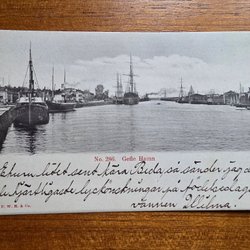 No. 266. Gefle Hamn
Ehuru litet sent kära Beda, så sänder jag de
hjärtligaste lyckönskningar på födelsedag
vännen Wilma.